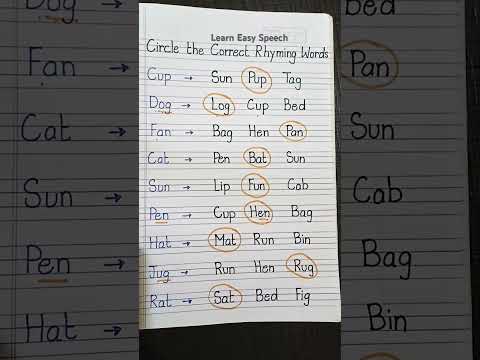 Learn Easy Speech
Circle the Correct Rhyming Words
Cup → Sun Pup Tag
Dog → Log Cup Bed
Fan → Bag Hen Pan
Cat → Pen Bat Sun
Sun → Lip Fun Cab
Pen → Cup Hen Bag
Hat → Mat Run Bin
Jug → Run Hen Rug
Rat → Sat Bed Fig
Dog →
Fan →
Cat →
Sun →
Pen →
Hat →
Bed
Pan
Sun
Cab
Bag
Bin